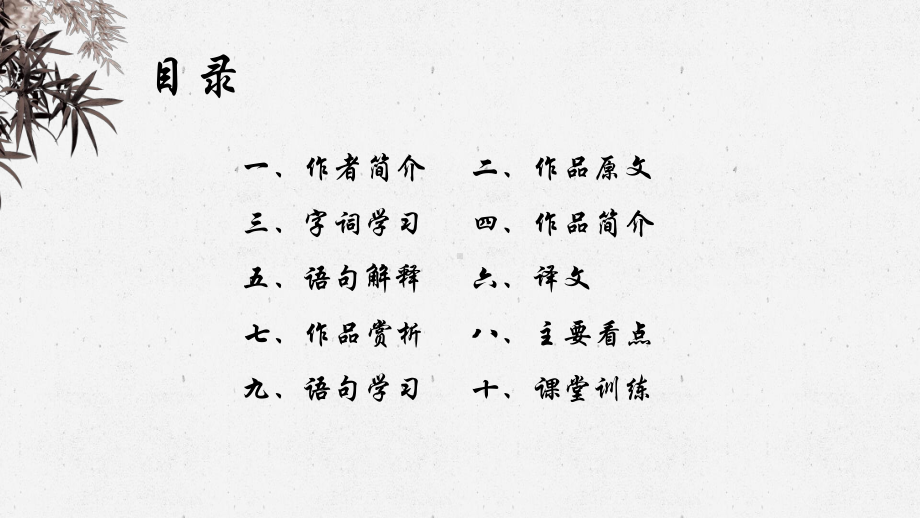 目录
一、作者简介 二、作品原文
三、字词学习 四、作品简介
五、语句解释 六、译文
七、作品赏析 八、主要看点
九、语句学习 十、课堂训练